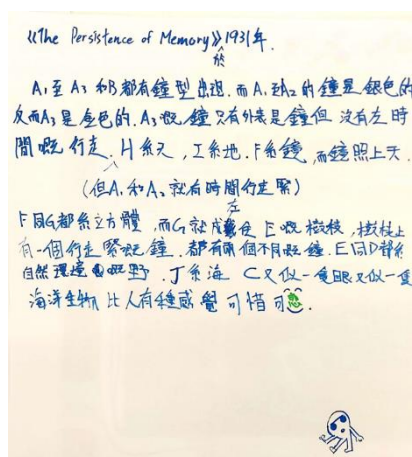 《The Persistence of Memory》於1931年.
A₁至A₃和B都有鐘型出現.而A₁至A₂的鐘是銀色的
反而A₃是金色的.A₃嘅鐘只有外裝是鐘但沒有左時
間嘅行走.H系天,I系地.F系鏡,而鏡照上天.
(但A₁和A₂就有時間行走緊)
F同G都系立方體,而G就成左E嘅樹枝,樹枝上
有一個行走緊嘅鐘.都有兩個不同嘅鐘.E同D都系
自然環境嘅野.J系海 C又似一隻眼又似一隻
海洋生物比人有種感覺可惜可